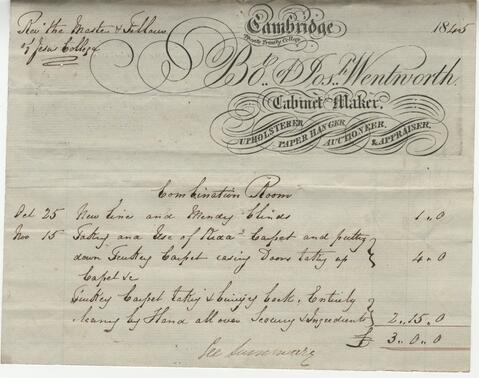 Revd the Master & Fellows
of Jesus College
Cambridge
1845
Opposite Trinity College
Bot. of Jos. Wentworth,
Cabinet Maker.
UPHOLSTERER, PAPER HANGER, AUCTIONEER, & APPRAISER.
Combination Room
Oct 25 New Lines and Mendg Blinds 1 .. 0
Nov 15 Taking and Use of Carpet and putting
down Turkey Carpet easing Doors taking up 4 .. 0
Carpet &c
Turkey Carpet taking & bringg back, Entirely
cleaning by Hand all over Scouring & Ingredients 2 .. 15 .. 0
£ 3 .. 0 .. 0
See Summary